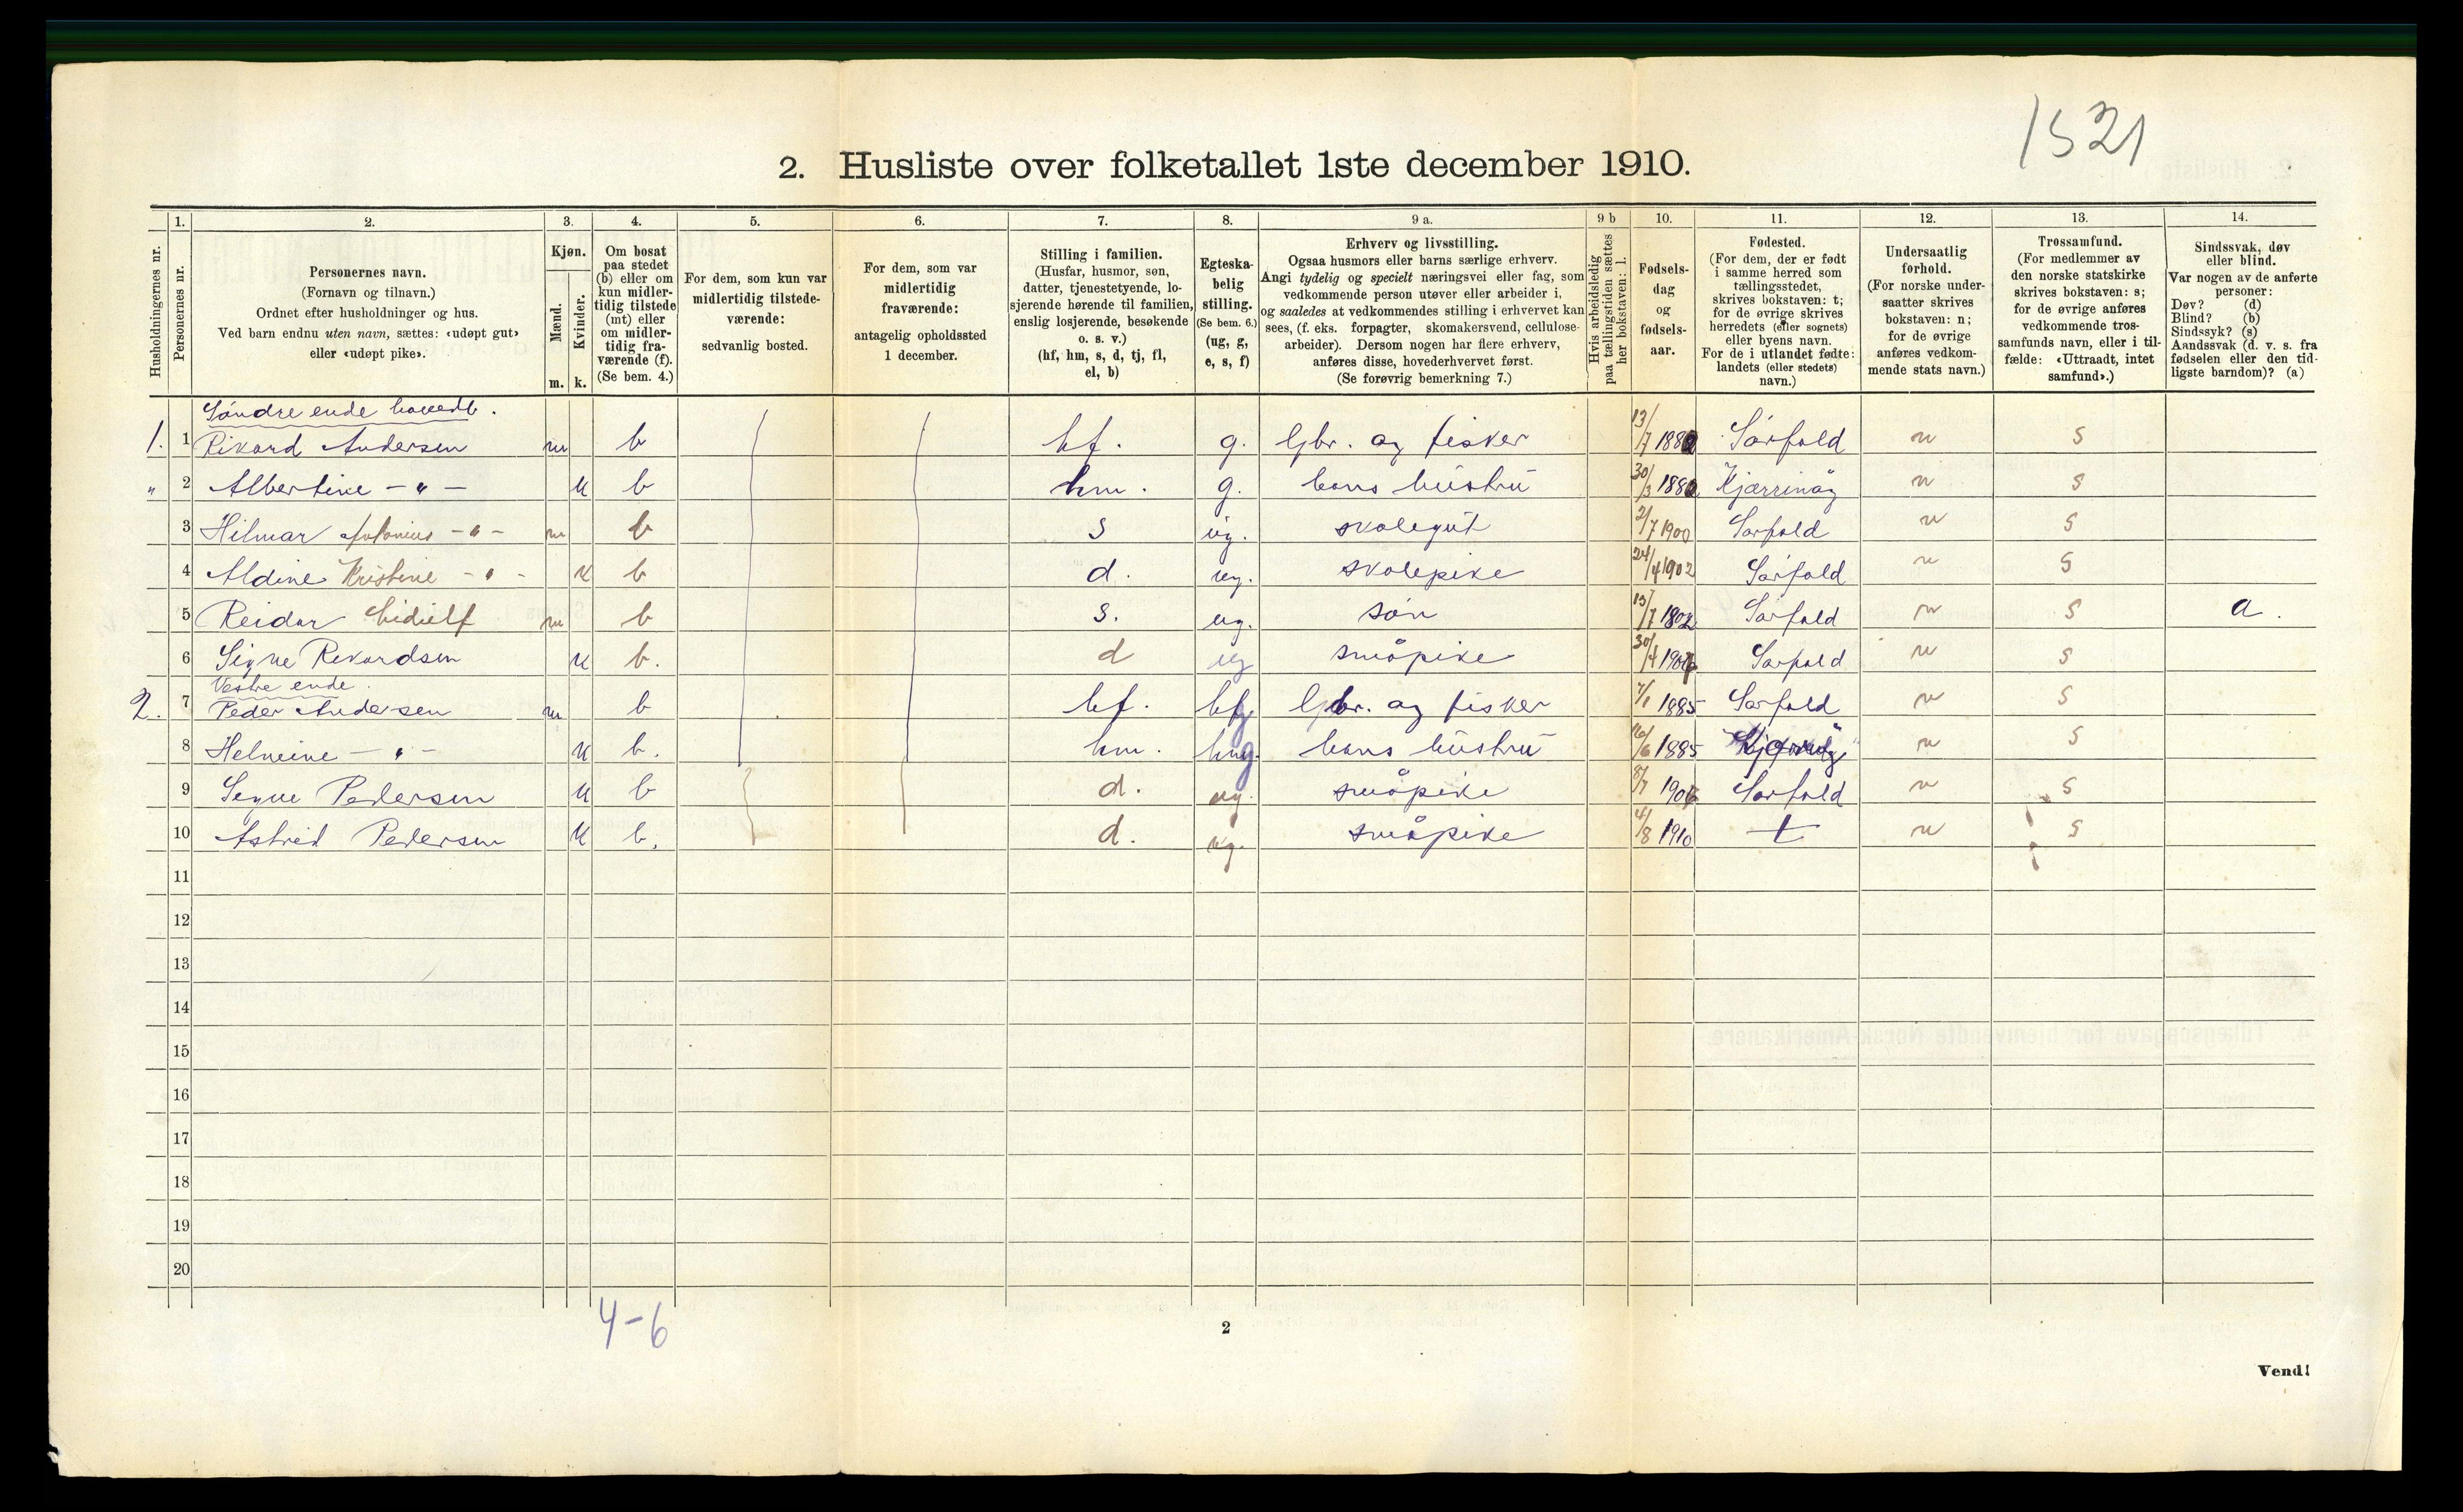 1521
2. Husliste over folketallet 1ste december 1910.
Husholdningernes nr.
1.
Personernes nr.
2.
Personernes navn.
(Fornavn og tilnavn.)
Ordnet efter husholdninger og hus.
Ved barn endnu uten navn, sættes: «udøpt gut»
eller «udøpt pike».
3.
Kjøn.
Mænd.
Kvinder.
m. k.
4.
Om bosat
paa stedet
(b) eller om
kun midler-
tidig tilstede
(mt) eller
om midler-
tidig fra-
værende (f).
(Se bem. 4.)
5.
For dem, som kun var
midlertidig tilstede-
værende:
sedvanlig bosted.
6.
For dem, som var
midlertidig
fraværende:
antagelig opholdssted
1 december.
7.
Stilling i familien.
(Husfar, husmor, søn,
datter, tjenestetyende, lo-
sjerende hørende til familien,
enslig losjerende, besøkende
o. s. v.)
(hf, hm, s, d, tj, fl,
el, b)
8.
Egteska-
belig
stilling.
(Se bem. 6.)
(ug, g,
e, s, f)
9 a.
Erhverv og livsstilling.
Ogsaa husmors eller barns særlige erhverv.
Angi tydelig og specielt næringsvei eller fag, som
vedkommende person utøver eller arbeider i,
og saaledes at vedkommendes stilling i erhvervet kan
sees, (f. eks. forpagter, skomakersvend, cellulose-
arbeider). Dersom nogen har flere erhverv,
anføres disse, hovederhvervet først.
(Se forøvrig bemerkning 7.)
9 b
Hvis arbeidsledig
paa tællingstiden sættes
her bokstaven: l.
10.
Fødsels-
dag
og
fødsels-
aar.
11.
Fødested.
(For dem, der er født
i samme herred som
tællingsstedet,
skrives bokstaven: t;
for de øvrige skrives
herredets (eller sognets)
eller byens navn.
For de i utlandet fødte:
landets (eller stedets)
navn.)
12.
Undersaatlig
forhold.
(For norske under-
saatter skrives
bokstaven: n;
for de øvrige
anføres vedkom-
mende stats navn.)
13.
Trossamfund.
(For medlemmer av
den norske statskirke
skrives bokstaven: s;
for de øvrige anføres
vedkommende tros-
samfunds navn, eller i til-
fælde: «Uttraadt, intet
samfund».)
14.
Sindssvak, døv
eller blind.
Var nogen av de anførte
personer:
Døv? (d)
Blind? (b)
Sindssyk? (s)
Aandssvak (d. v. s. fra
fødselen eller den tid-
ligste barndom)? (a)
Söndre ende hovedb.
1. 1 Rikard Andersen m b hf. g. Gbr. og fisker 13/7 1880 Sörfold n s
" 2 Albertine - " - k b hm. g. hans hustru 30/3 1880 Kjærringöy n s
3 Hilmar Antonius - " - m b s ug. skolegut 2/7 1900 Sörfold n s
4 Aldine Kristine - " - k b d. ug. skolepike 24/4 1902 Sörfold n s
5 Reidar m b s. ug. sön 13/7 Sörfold n s a.
6 Signe Rikardsen k b. d ug småpike 30/4 Sörfold n s
Vestre ende.
2. 7 Peder Andersen m b hf. g Gbr. og fisker 7/1 1885 Sörfold n s
8 Helmine - " - k b. hm. g. hans hustru 1885 n s
9 Signe Pedersen k b d. ug. småpike 8/7 1906 Sörfold n s
10 Astrid Pedersen k b. d. ug. småpike 4/8 1910 t n s
11
12
13
14
15
16
17
18
19
20
4-6
2
Vend!